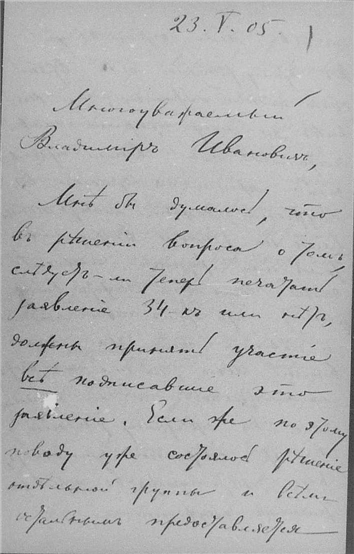 23. V. 05.
Многоуважаемый
Владиміръ Ивановичъ,
Мнѣ бы думалось, что
въ рѣшеніи вопроса о томъ,
слѣдуетъ-ли теперь печатать
заявленіе 34-хъ или нѣтъ,
должны принять участіе
всѣ подписавшіе это
заявленіе. Если же по этому
поводу уже состоялось рѣшеніе
отдѣльной группы и всѣмъ
остальнымъ предоставляется